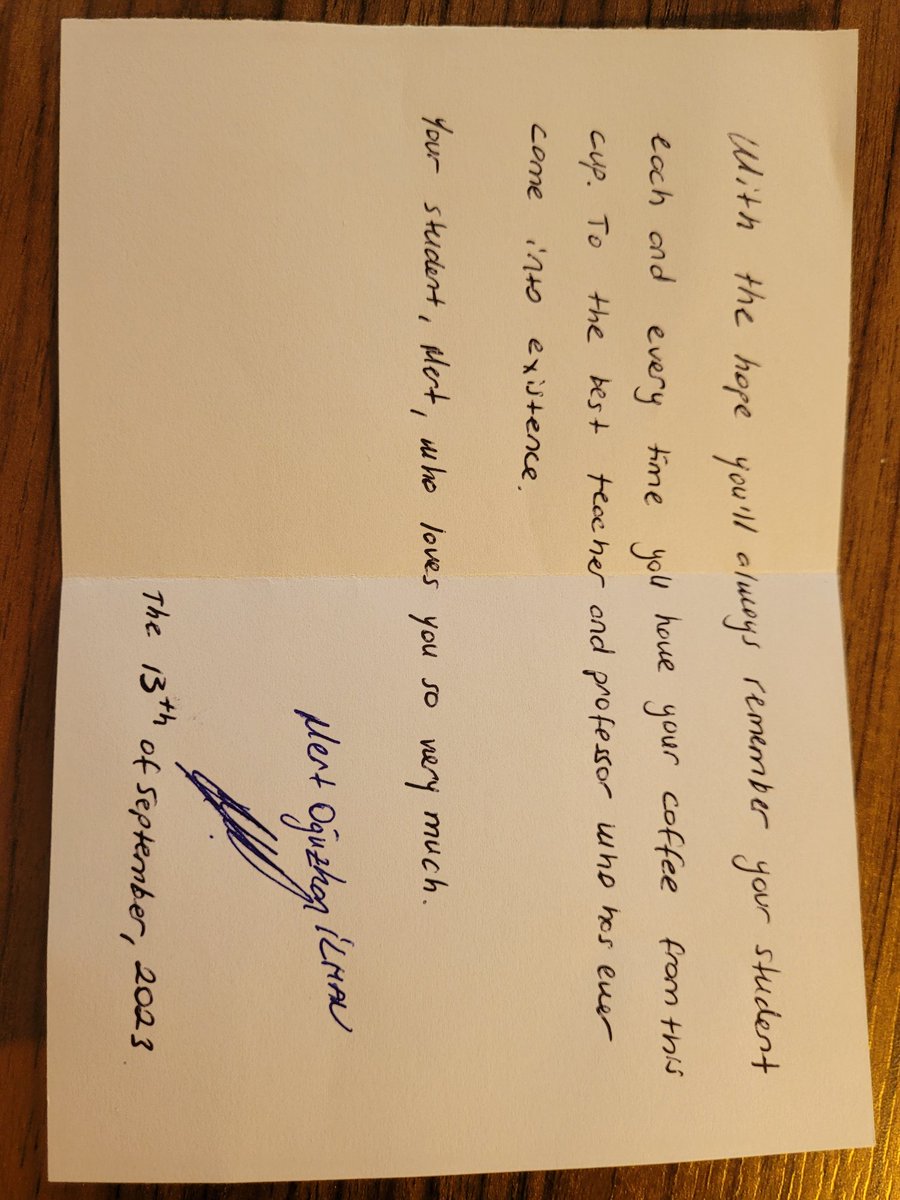 With the hope you'll always remember your student
each and every time you have your coffee from this
cup. To the best teacher and professor who has ever
come into existence.
Your student, Mert, who loves you so very much.
Mert Oğuzhan İLMAN
The 13th of September, 2023